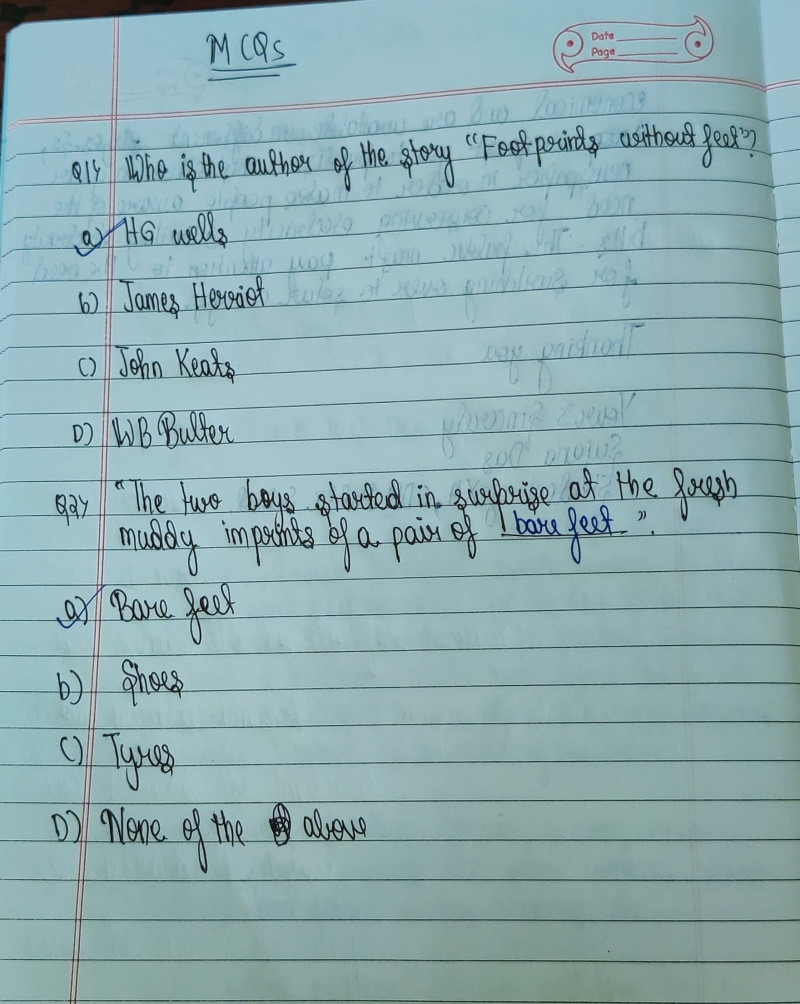 MCQs
Date
Page
Q1) Who is the author of the story "Footprints without feet"?
a) HG wells
b) James Herriot
c) John Keats
D) WB Bulter
Q2) "The two boys started in surprise at the fresh
muddy imprints of a pair of bare feet".
a) Bare feet
b) Shoes
c) Tyres
D) None of the above